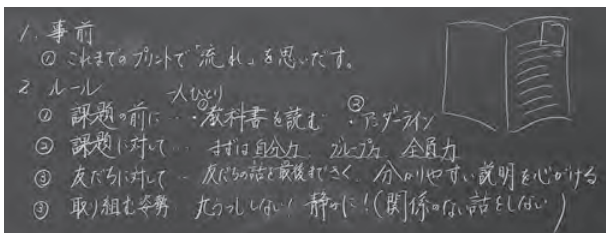 1. 事前
① これまでのプリントで「流れ」を思いだす。
2 ルール
一人ひとり
① 課題の前に… ・①教科書を読む ・②アンダーライン
② 課題に対して… まずは自分力 グループ力 全員力
③ 友だちに対して… 友だちの話を最後まできく 分かりやすい説明を心がける
③ 取り組む姿勢 丸うつししない! 静かに!(関係のない話をしない)